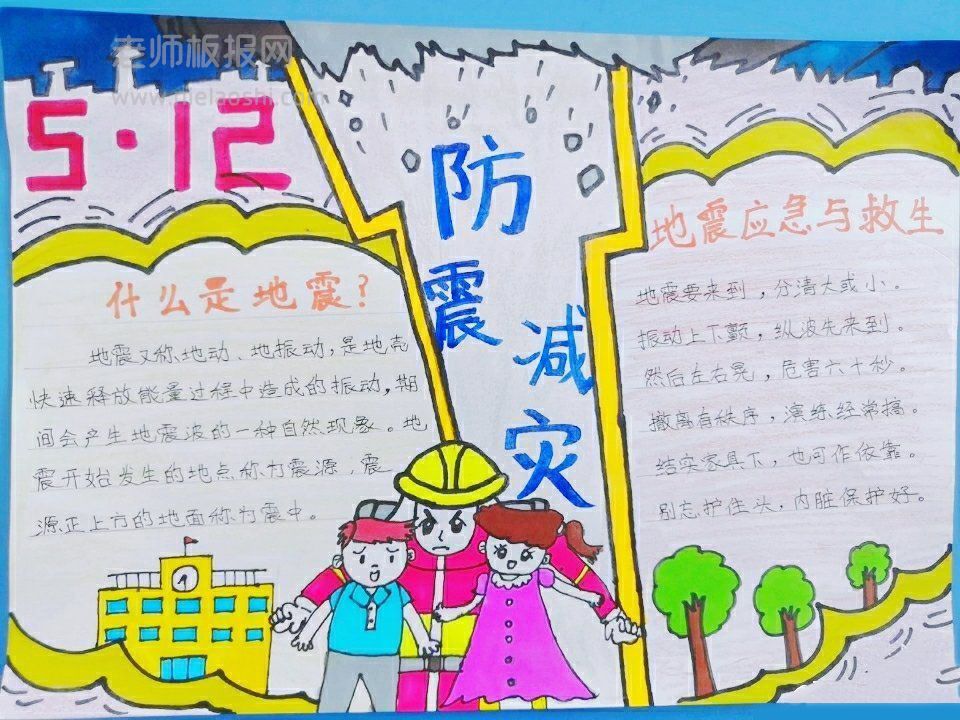 老师板报网
5·12
防震减灾
什么是地震?
地震又称地动、地振动,是地壳
快速释放能量过程中造成的振动,期
间会产生地震波的一种自然现象。地
震开始发生的地点称为震源,震
源正上方的地面称为震中。
地震应急与救生
地震要来到,分清大或小。
振动上下颤,纵波先来到。
然后左右晃,危害六十秒。
撤离有秩序,演练经常搞。
结实家具下,也可作依靠。
别忘护住头,内脏保护好。